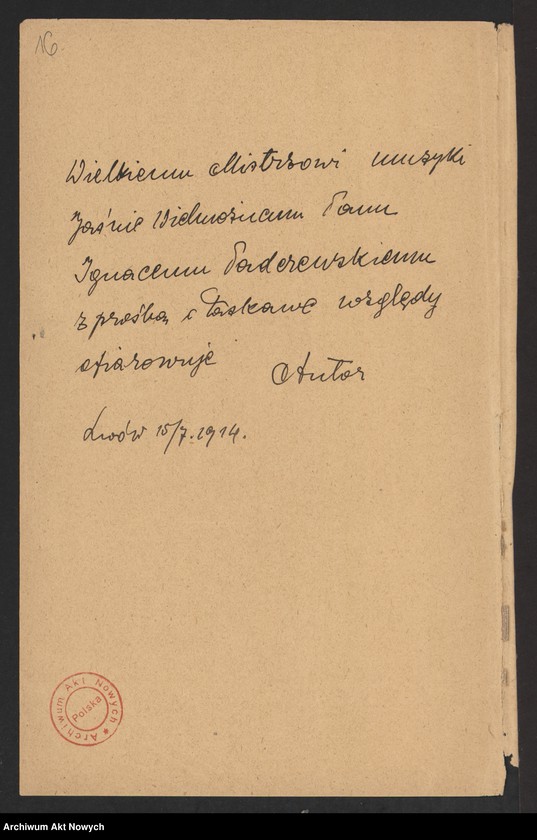 16.
Wielkiemu Mistrzowi muzyki
Jaśnie Wielmożnemu Panu
Ignacemu Paderewskiemu
z prośbą o łaskawe względy
ofiarowuje
Autor
Lwów 15/7.1914.
Archiwum Akt Nowych
Polska
Archiwum Akt Nowych